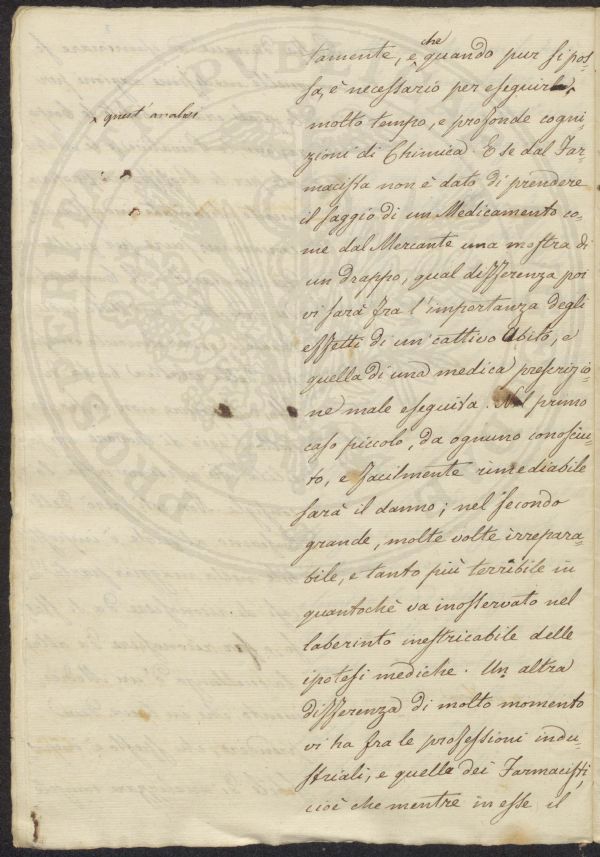 tamente, e che quando pur si pos-
sa, è necessario per eseguirle
quest'analisi
molto tempo, e profonde cogni-
zioni di Chimica. E se dal Far-
macista non è dato di prendere
il saggio di un Medicamento co-
me dal Mercante una mostra di
un drappo, qual differenza poi
vi sarà fra l'importanza degli
effetti di un cattivo abito, e
quella di una medica prescrizio-
ne male eseguita. Nel primo
caso piccolo, da ognuno conosciu-
to, e facilmente rimediabile
sarà il danno; nel secondo
grande, molte volte irrepara-
bile, e tanto più terribile in
quantochè va inosservato nel
laberinto inestricabile delle
ipotesi mediche. Un altra
differenza di molto momento
vi ha fra le professioni indu-
striali, e quelle dei Farmacisti,
cioè che mentre in esse il